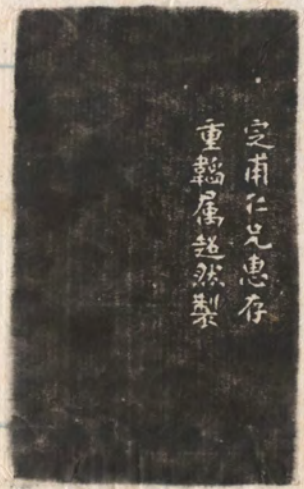 定甫仁兄惠存
重韜属超然製